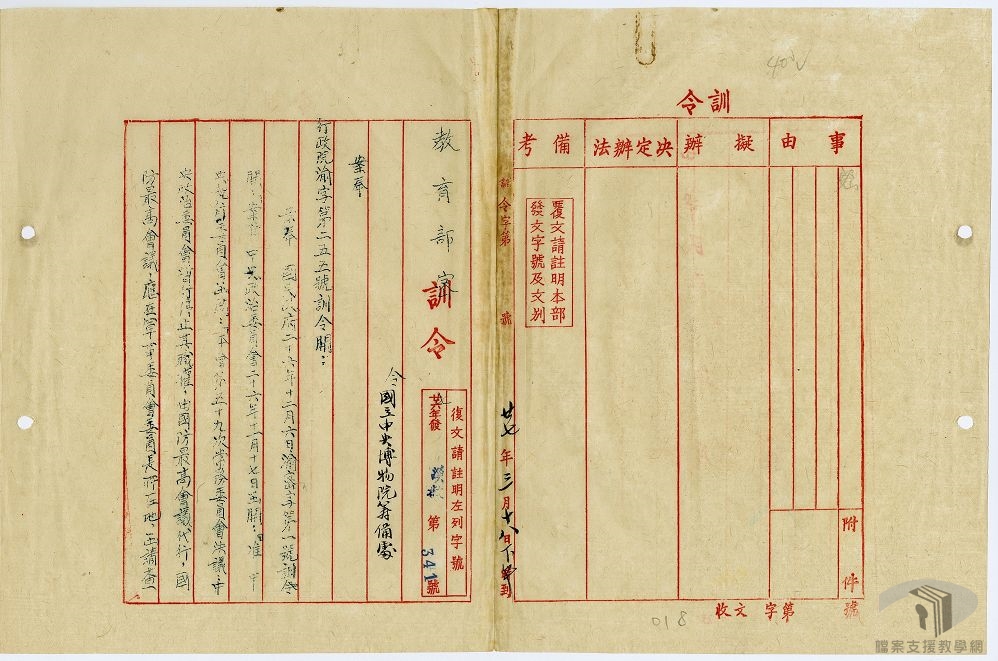 訓令
事由
擬辦
決定辦法
備考
附件
覆文請註明本部
發文字號及文別
收文 字第 號
018
訓令字第 號
廿七年三月十八日下午到
教育部
訓令
復文請註明左列字號
年發 漢 第341號
令國立中央博物院籌備處
案奉
行政院渝字第二五五號訓令開：
案奉 國民政府二十六年十二月六日渝密字第一號訓令
開：案准 中央政治委員會二十六年十一月十七日函開：准 中
央執行委員會函開：本會第五十九次常務委員會決議，中
央政治委員會暫行停止，其職權，由國防最高會議代行，國
防最高會議，應在軍事委員會委員長所在地，函請查
檔案支援教學網